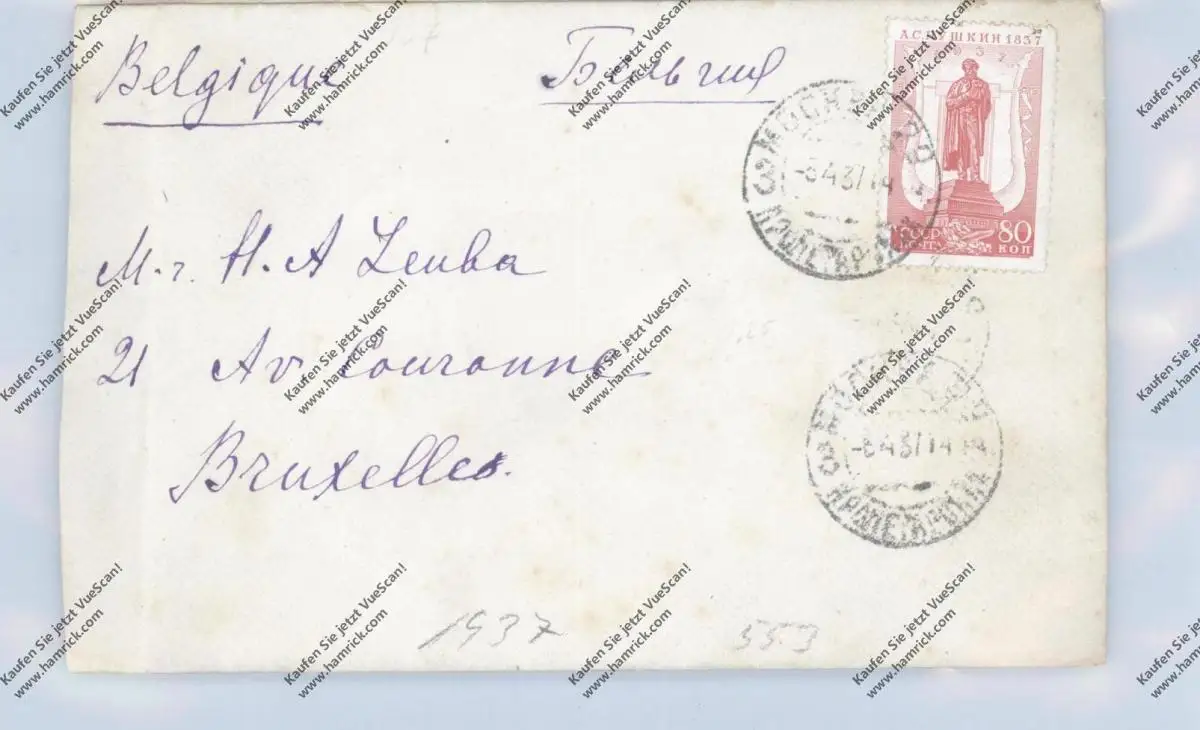 Belgique Бельгия
А.С.ПУШКИН 1837
1937
СССР
ПОЧТА
80
КОП
МОСКВА
-8 4 37 14
M.r. H. A Zeuba
21 Av Couronne
Bruxelles.
МОСКВА
-8 4 37 14
1937 553
Kaufen Sie jetzt VueScan!
www.hamrick.com